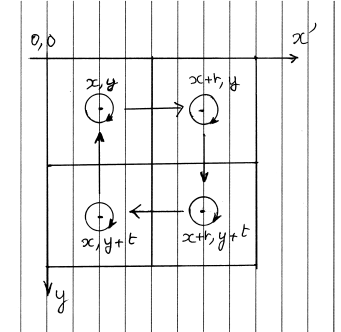 0,0
x'
x,y
x+r,y
x,y+t
x+r,y+t
y